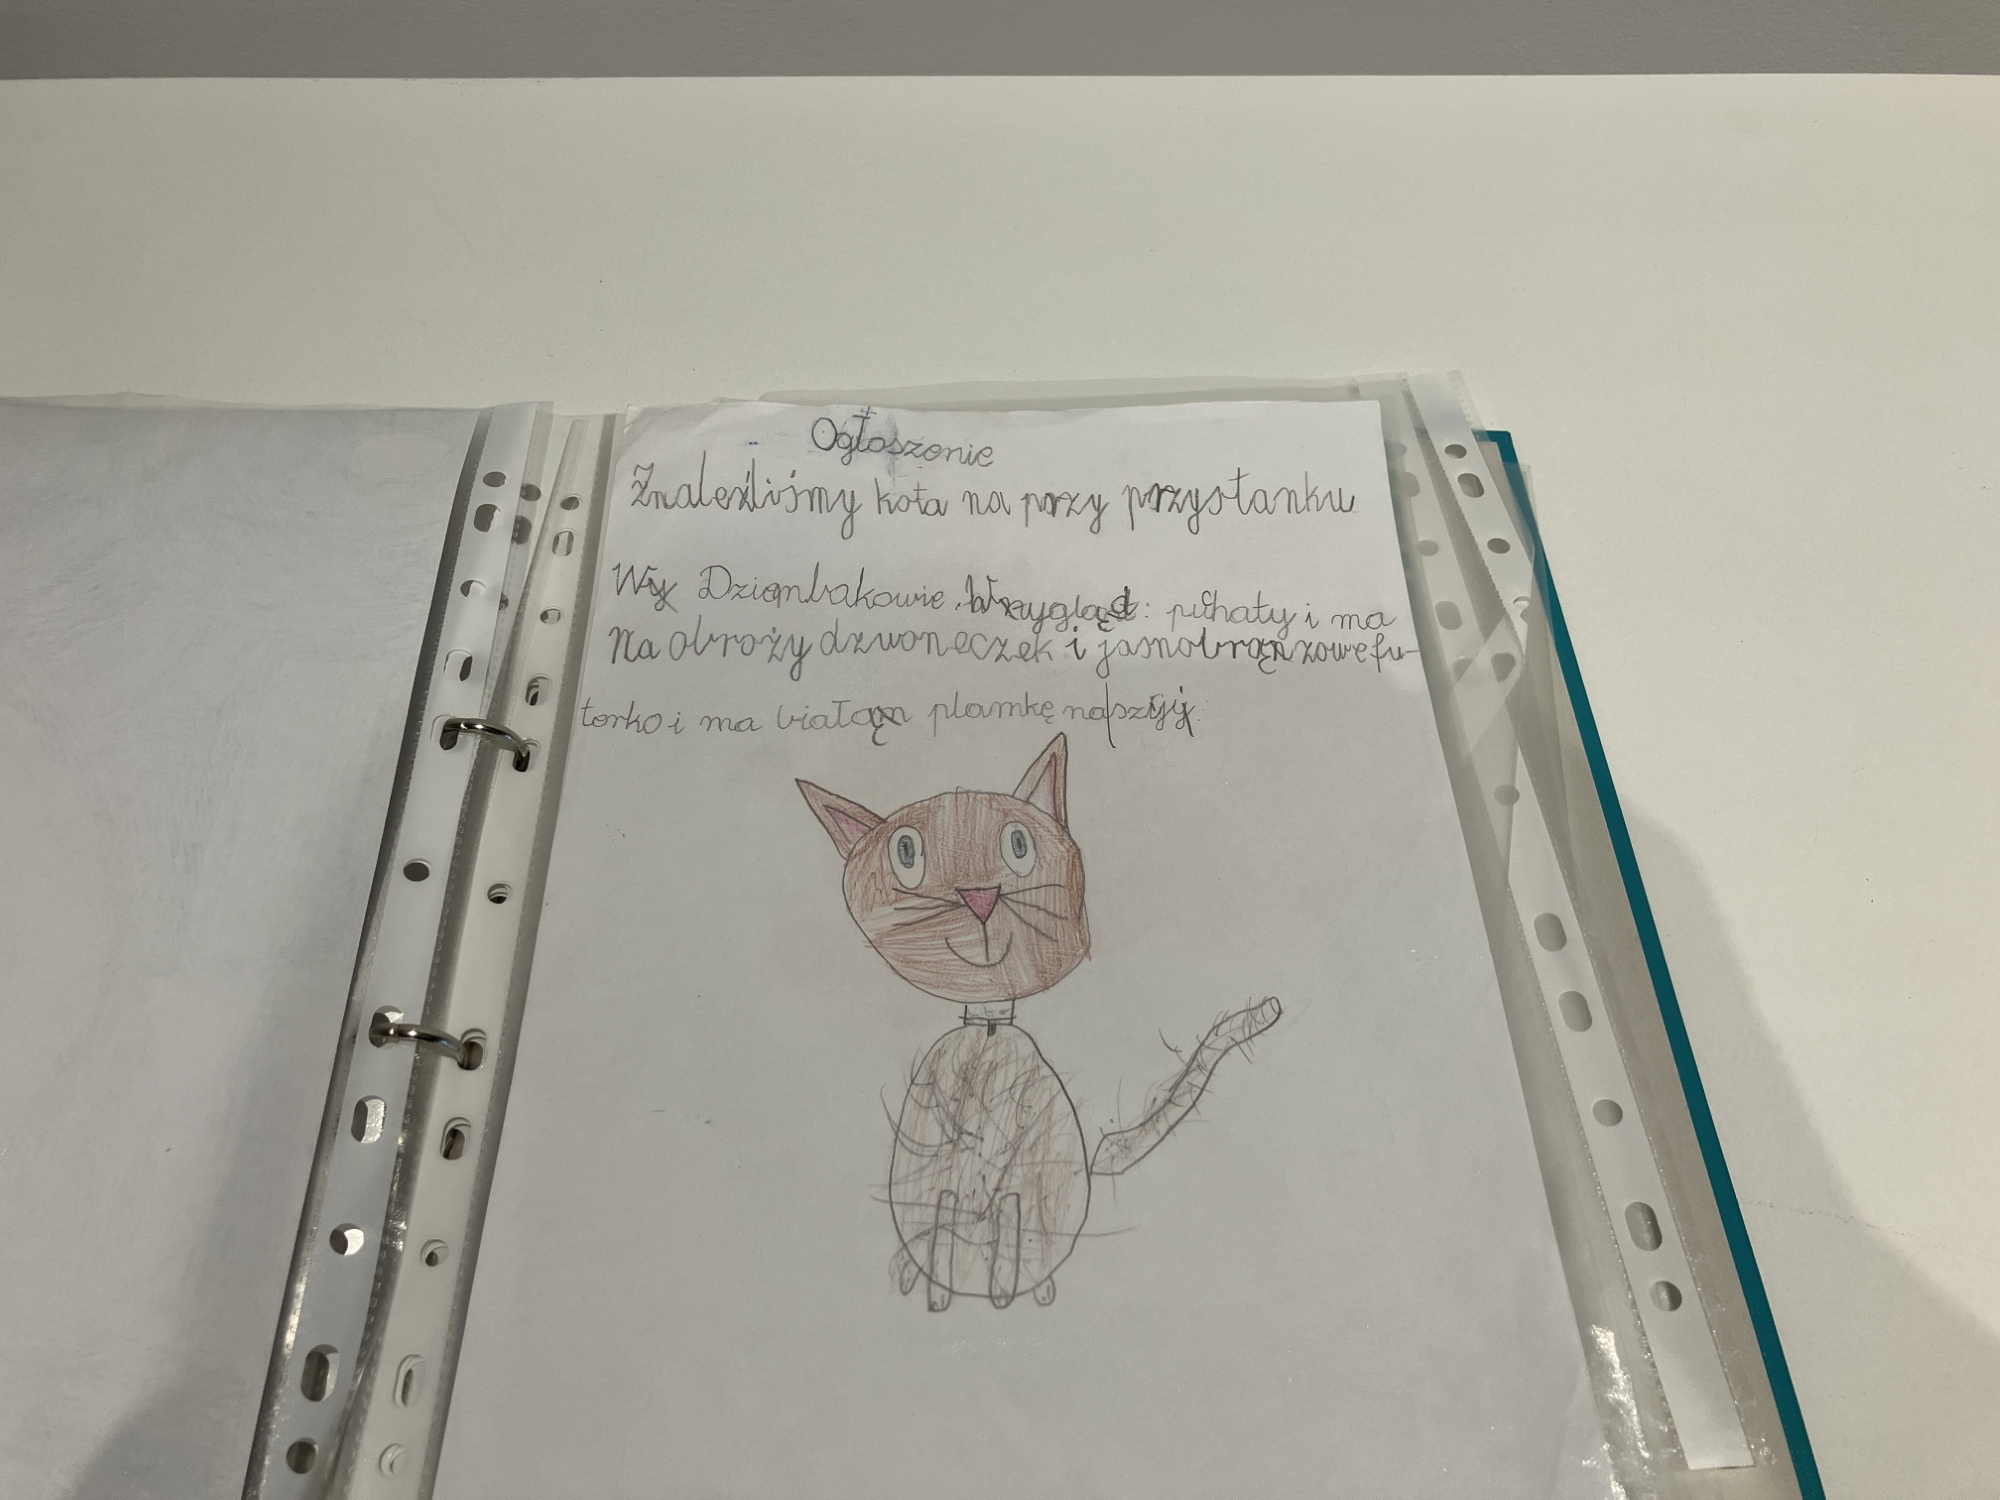 Ogłoszenie
Znaleźliśmy kota na przy przystanku
Wy Dziembakowie. Wygląd: puchaty i ma
Na obroży dzwoneczek i jasnobrązowe fu-
terko i ma białą plamkę na szyji.